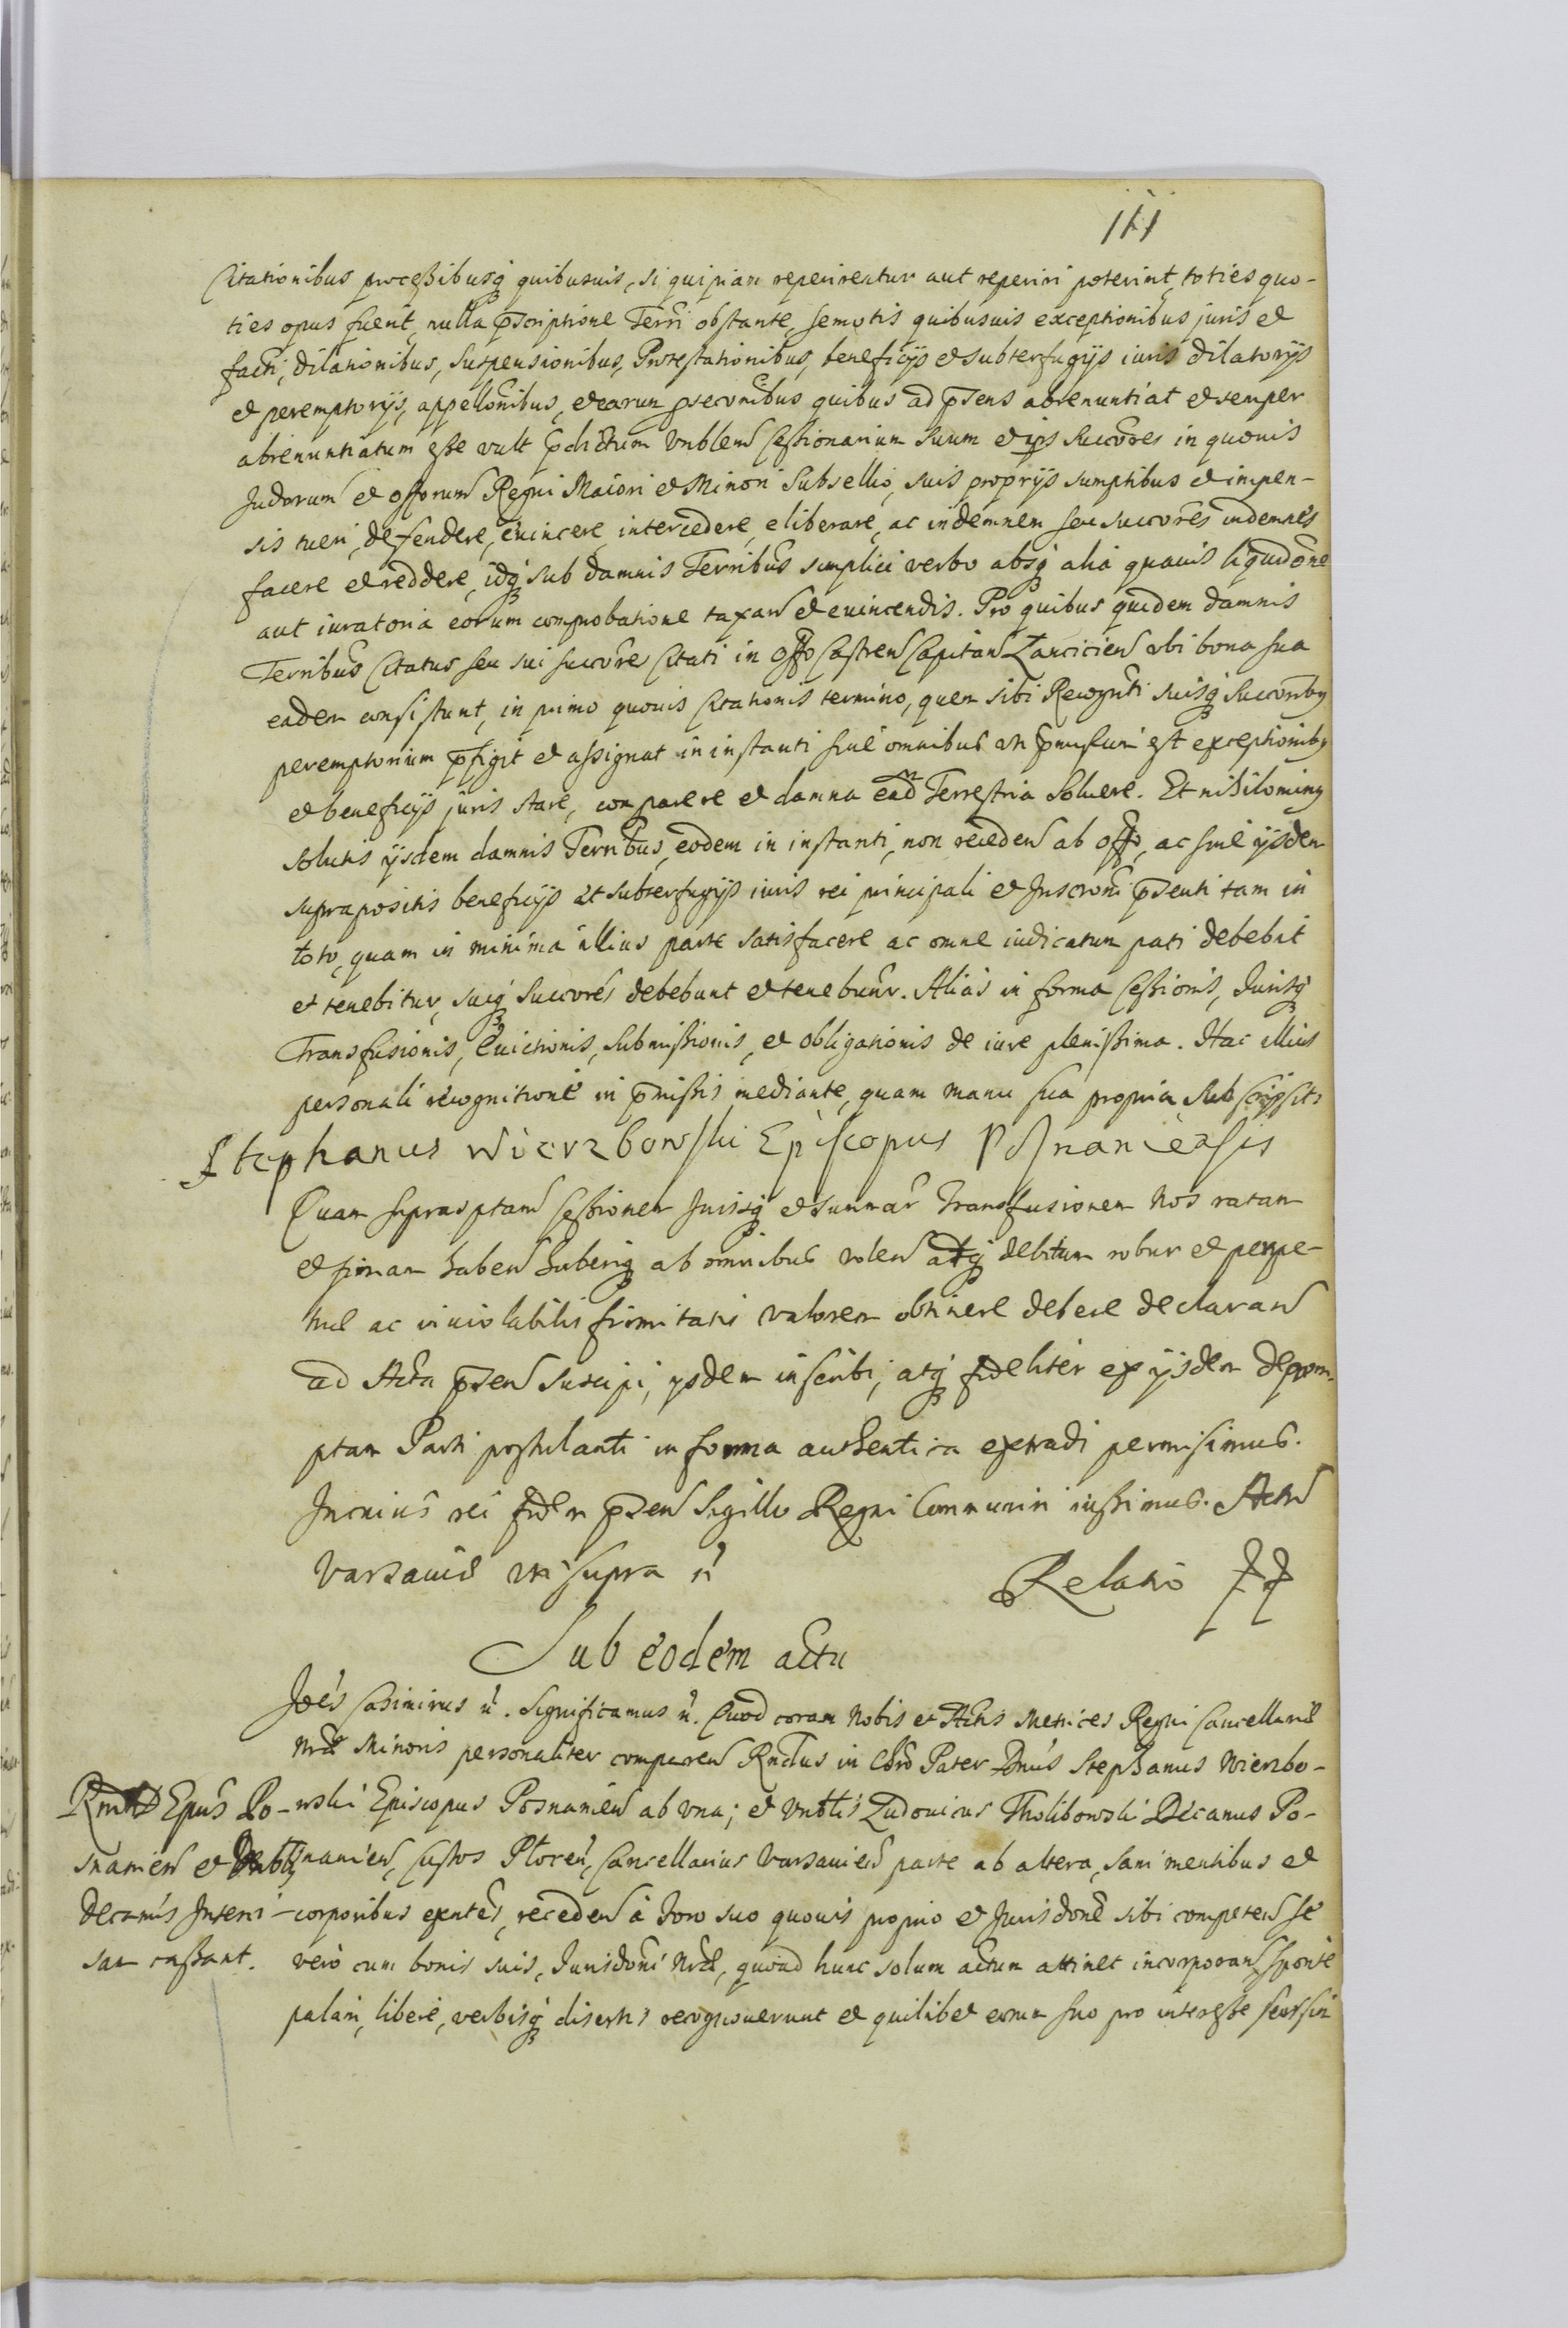 111
Citationibus processibusq quibusuis, si quipiam reperirentur aut reperiri poterint, toties quo-
ties opus fuerit, nulla pscriptione Terri obstante, semotis quibusuis exceptionibus juris et
facti, dilationibus, suspensionibus, Protestationibus, beneficijs et subterfugijs iuris dilatorijs
et peremptorijs, appellonibus, et earum psecunibus quibus ad psens abrenuntiat et semper
abrenuntiatum esse vult pdictum Vnblem Cessionarium suum et ips succores in quouis
Judorum et offorum Regni Maiori et Minori Subsellio, suis proprijs sumptibus et impen-
sis tueri, defendere, euincere, intercedere, eliberare, ac indemnem seu succores indemnes
facere et reddere, idq sub damnis Terribus simplici verbo absq alia quauis liquidone
aut iuratoria eorum comprobatione taxan et euincendis. Pro quibus quidem damnis
Terribus Citatus seu sui succores Citati in offo Castren Capitan Lancicien vbi bona sua
eadem consistunt, in primo quouis Citationis termino, quem sibi Recognti suisq succoribus
peremptorium pfigit et assignat in instanti sine omnibus uti pmissum est exceptionibus
et beneficijs juris stare, comparere et damna ead Terrestria soluere. Et nihilominus
solutis ijsdem damnis Terribus, eodem in instanti, non receden ab offo, ac sine ijsdem
suprapositis beneficijs et subterfugijs iuris rei principali et Inscroni psenti tam in
toto, quam in minima illius parte satisfacere ac omne iudicatum pati debebit
et tenebitur, suiq succores debebunt et tenebuntur. Alias in forma Cessionis, Jurisq
Transfusionis, Euictionis, submissionis, et obligationis de iure plenissima. Hac illius
personali recognitione in pmissis mediante, quam manu sua propria subscripsit:
Stephanus Wierzbowski Episcopus Posnaniensis
Quam suprascptam Cessionem Jurisq et summar Transfusionem Nos ratam
et firmam haben haberiq ab omnibus volen atq debitum robur et perpe-
tuae ac inuiolabilis firmitatis valorem obtinere debere declaran
ad Acta psen suscipi, ysdem inscribi, atq fideliter ex ijsdem deprom-
ptam Parti postulanti in forma authentica extradi permisimus.
In cuius rei fidem psen Sigillo Regni Communiri iussimus. Actu
Varsauiae uti supra
Relatio
Sub eodem actu
Joes Casimirus. Significamus. Quod coram Nobis et Actis Metrices Regni Cancellariae
Nrae Minoris personaliter comparen Rndus in Chro Pater Dnus Stephanus Wierzbo-
wski Episcopus Posnanien ab vna; et Vnblis Ludouicus Tholibowski Decanus Po-
snanien, Custos Plocen, Cancellarius Varsauien parte ab altera, sani mentibus et
corporibus exntes, receden a Foro suo quouis proprio et Jurisdone sibi competen se
vero cum bonis suis, Jurisdoni Nrae, quoad hunc solum actum attinet incorporan sponte
palam, libere, verbisq disertis recognouerunt et quilibet eorum suo pro interesse seorsim
Epus Po-
snanien et
Decanus Inscri-
cassant.